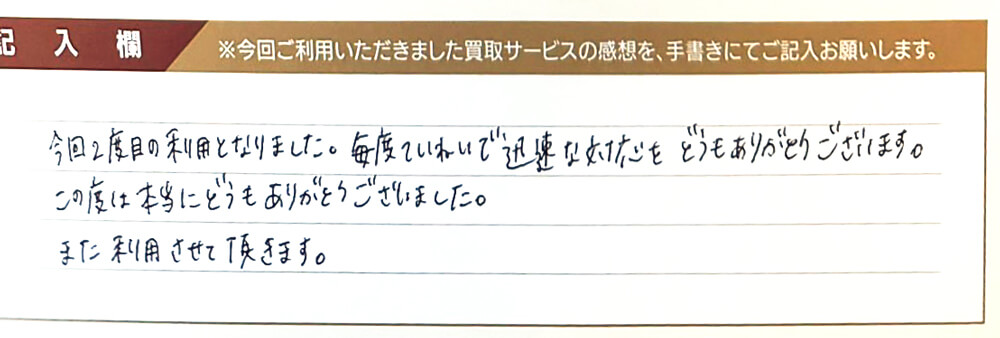 記入欄
※今回ご利用いただきました買取サービスの感想を、手書きにてご記入お願いします。
今回2度目の利用となりました。毎度ていねいで迅速な対応を どうもありがとうございます。
この度は本当にどうもありがとうございました。
また利用させて頂きます。